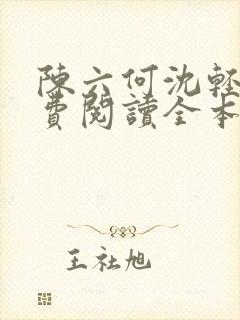 陳六何沈輕
費閱讀全本
王社旭